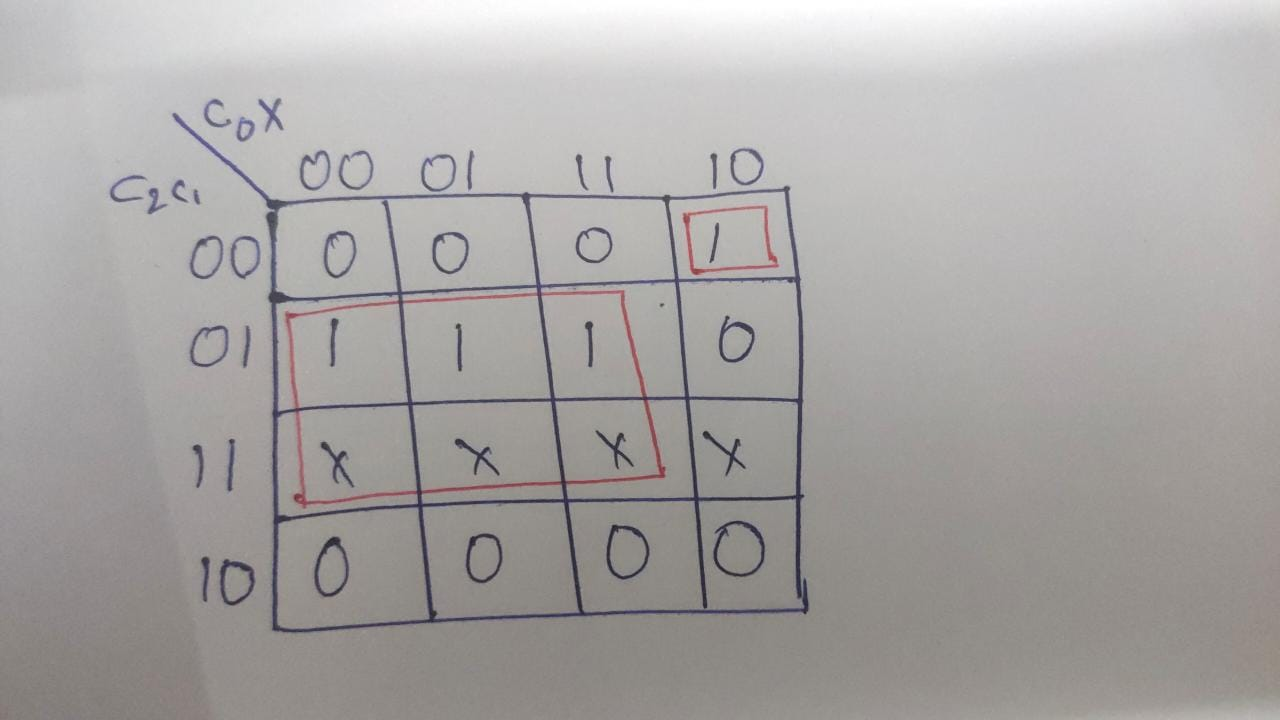 C₀X
C₂C₁
00 01 11 10
00 0 0 0 1
01 1 1 1 0
11 X X X X
10 0 0 0 0